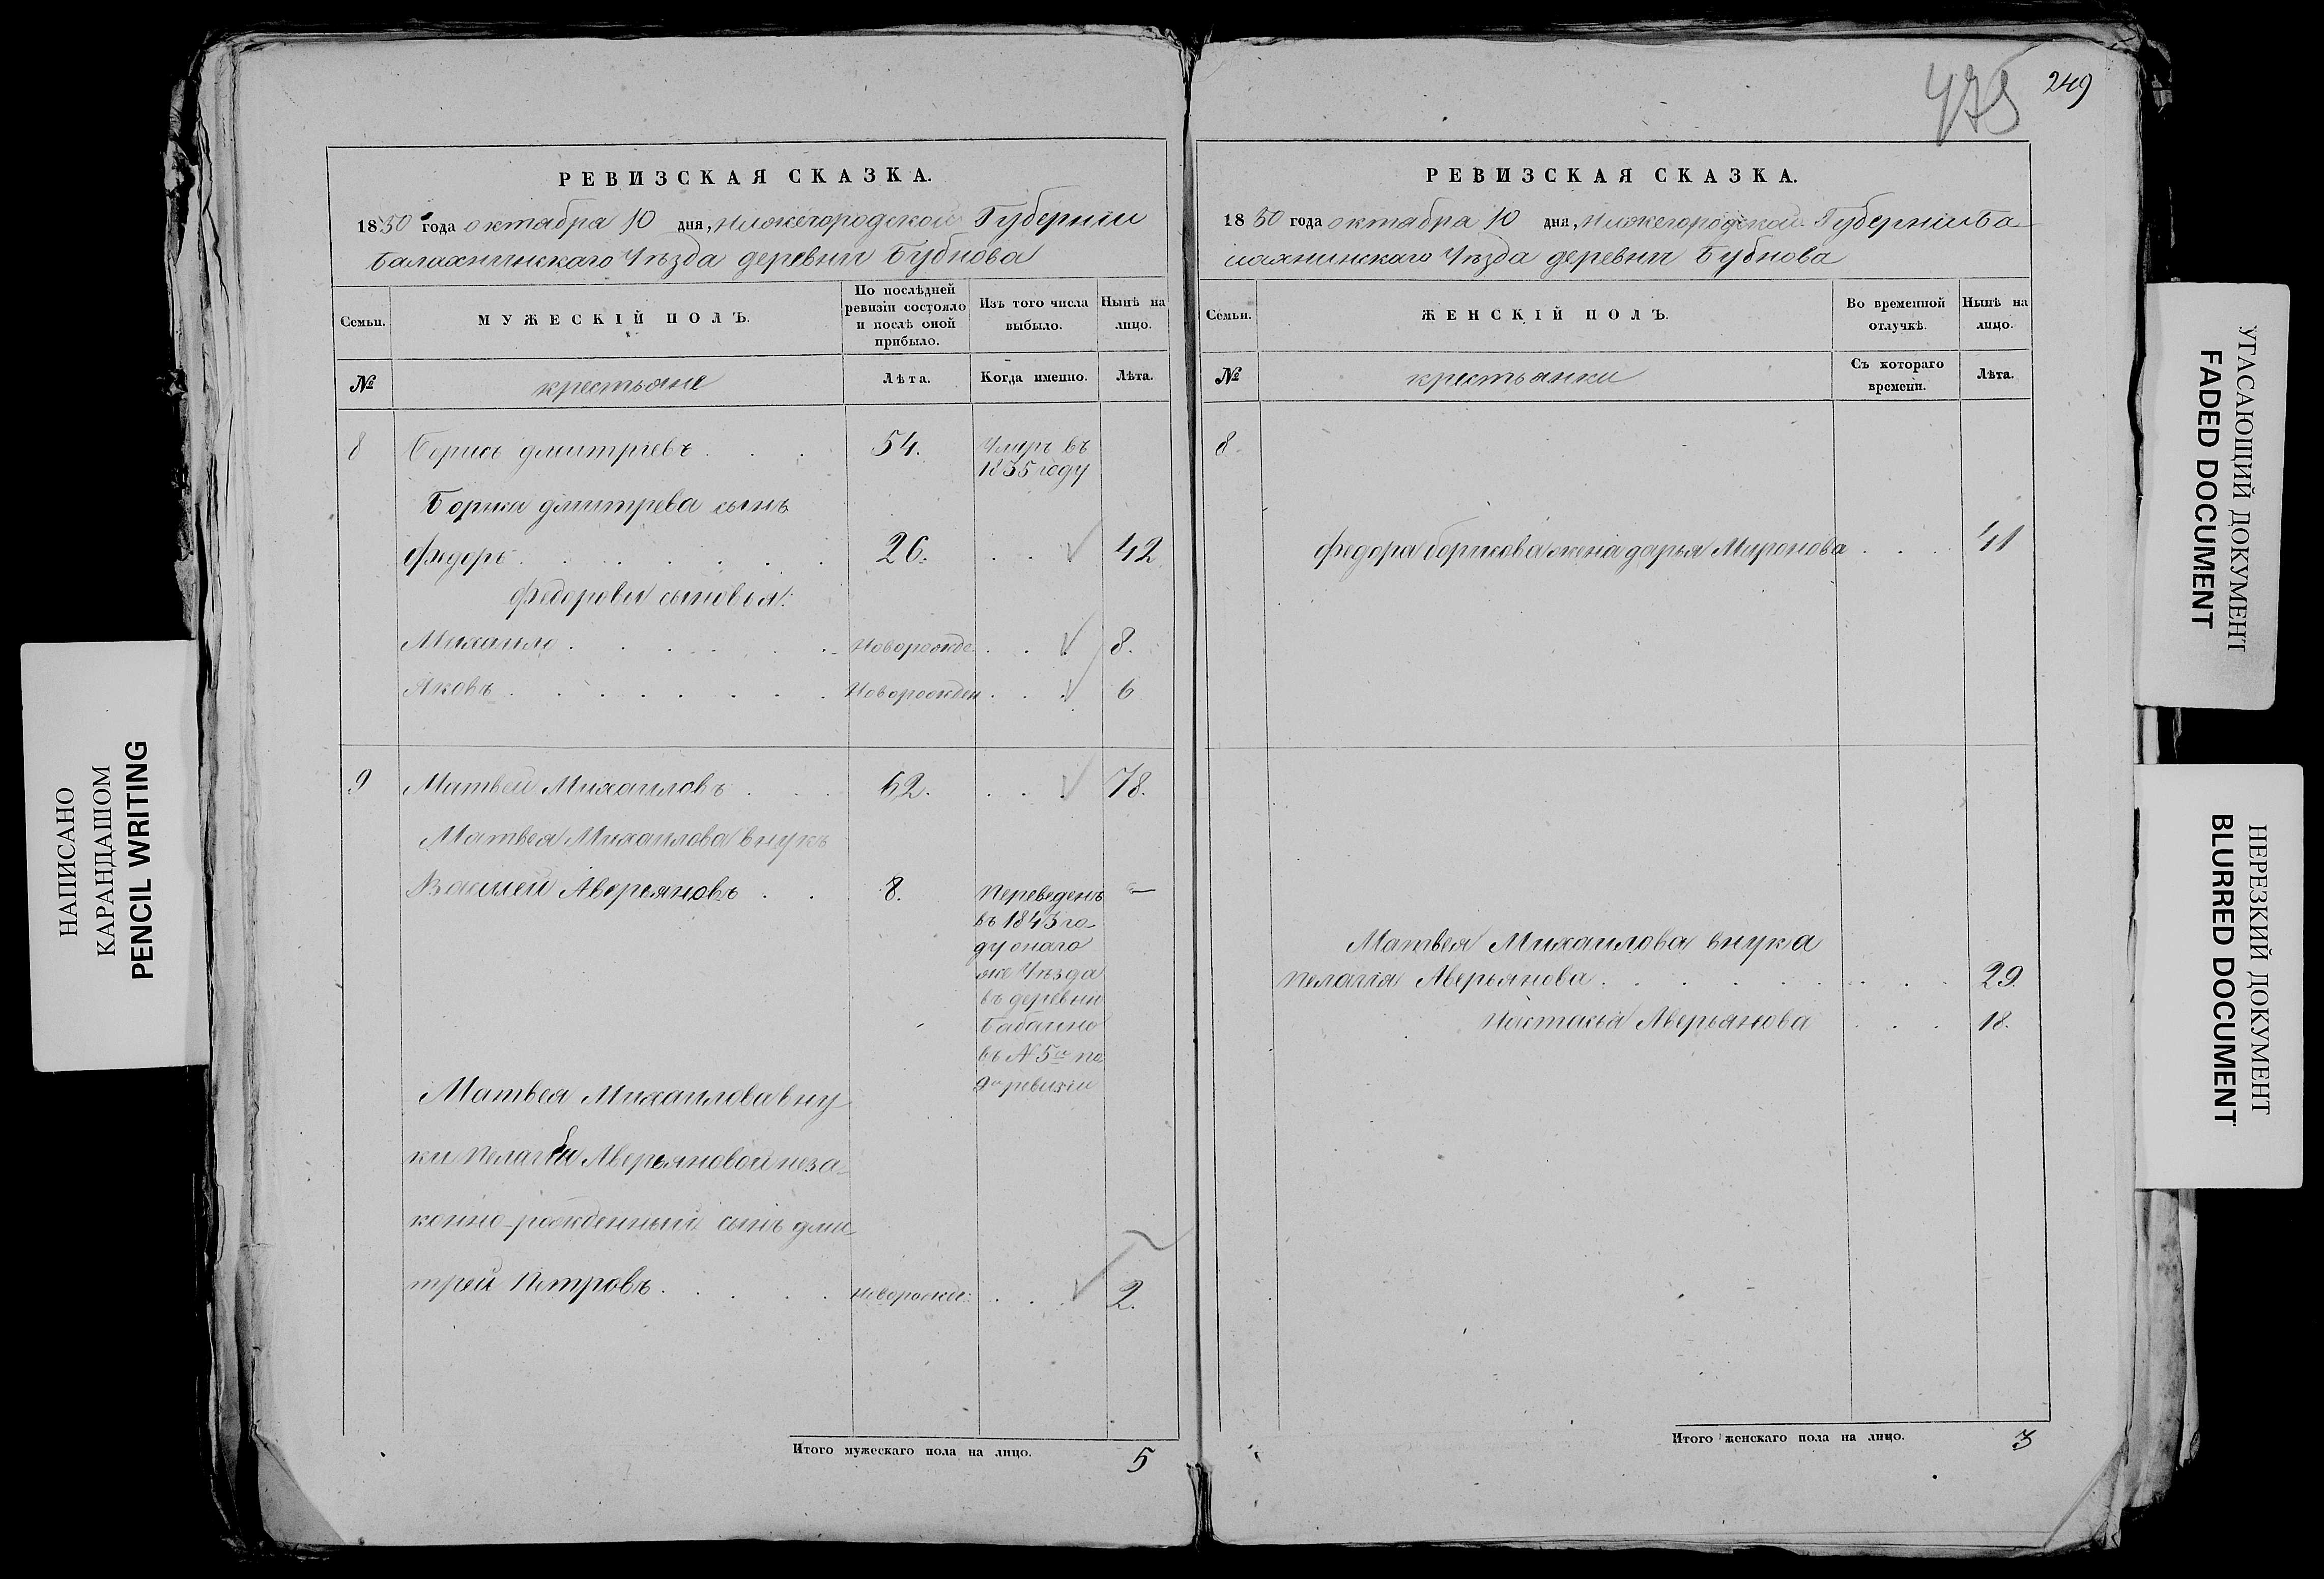 475 249
РЕВИЗСКАЯ СКАЗКА.
1850 года октября 10 дня, Нижегородской Губернии
Балахнинскаго Уѣзда деревни Бубнова
Семьи.
МУЖЕСКІЙ ПОЛЪ.
По послѣдней
ревизіи состояло
и послѣ оной
прибыло.
Изъ того числа
выбыло.
Нынѣ на
лицо.
№
крестьяне
Лѣта.
Когда именно.
Лѣта.
8 Борисъ дмитріевъ . . . 54. Умеръ въ
1835 году
Бориса дмитрева сынъ
Федоръ . . . . . . . 26. . . 42
Федоровы сыновья:
Михаило . . . . . . Новорожде. . . . 8.
Яковъ . . . . . . . . Новорожден . . . 6
9 Матвей Михаиловъ . . . 62. . . . 78.
Матвея Михаилова внукъ
Василей Аверьяновъ . . 8. Переведенъ —
въ 1843 го-
ду онаго
же Уѣзда
въ деревню
Бабаино
въ № 5й по
9й ревизіи
Матвея Михаилова вну-
ки Пелагеи Аверьяновой неза-
конно-рожденный сынъ дми-
трей Петровъ . . . . . Новорожде: . . . 2.
Итого мужескаго пола на лицо. 5
РЕВИЗСКАЯ СКАЗКА.
1850 года октября 10 дня, Нижегородской Губерніи Ба-
лахнинскаго Уѣзда деревни Бубнова
Семьи.
ЖЕНСКІЙ ПОЛЪ.
Во временной
отлучкѣ.
Нынѣ на
лицо.
№
крестьянки
Съ котораго
времени.
Лѣта.
8.
Федора борисова жена дарья Миронова . . . 41
Матвея Михаилова внука
Пелагія Аверьянова . . . . . . . . 29.
Настасья Аверьянова . . . 18.
Итого женскаго пола на лицо. 3
НАПИСАНО
КАРАНДАШОМ
PENCIL WRITING
УГАСАЮЩИЙ ДОКУМЕНТ
FADED DOCUMENT
НЕРЕЗКИЙ ДОКУМЕНТ
BLURRED DOCUMENT